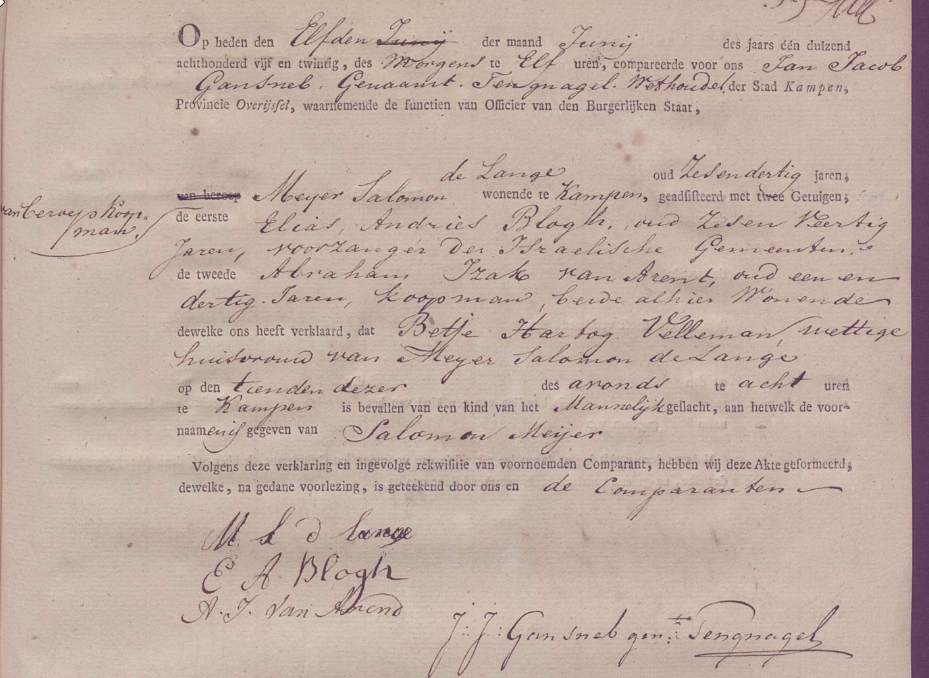 Op heden den Elfden Junij der maand Junij des jaars één duizend
achthonderd vijf en twintig, des Morgens te Elf uren, compareerde voor ons Jan Jacob
Gansneb, Genaamt Tengnagel Wethouder, der Stad Kampen,
Provincie Overijssel, waarnemende de functien van Officier van den Burgerlijken Staat,
de Lange oud Zesendertig jaren,
van beroep Meyer Salomon wonende te Kampen, geadsisteerd met twee Getuigen;
van beroep Koop-
man
de eerste Elias, Andries Blogh, oud Zesen Veertig
Jaren, voorzanger der Israelische Gemeenten,
de tweede Abraham Izak van Arent, oud een en
dertig Jaren, koopman, beide alhier Wonende
dewelke ons heeft verklaard, dat Betje Hartog Velleman, wettige
huisvroud van Meyer Salomon de Lange
op den tienden dezer des avonds te acht uren
te Kampen is bevallen van een kind van het Mannelijk geslacht, aan hetwelk de voor-
naamen is gegeven van Salomon Meijer
Volgens deze verklaring en ingevolge rekwisitie van voornoemden Comparant, hebben wij deze Akte geformeerd,
dewelke, na gedane voorlezing, is geteekend door ons en de Comparanten
M S d Lange
E A Blogh
A. I. van Arend
J: J: Gansneb gent Tengnagel